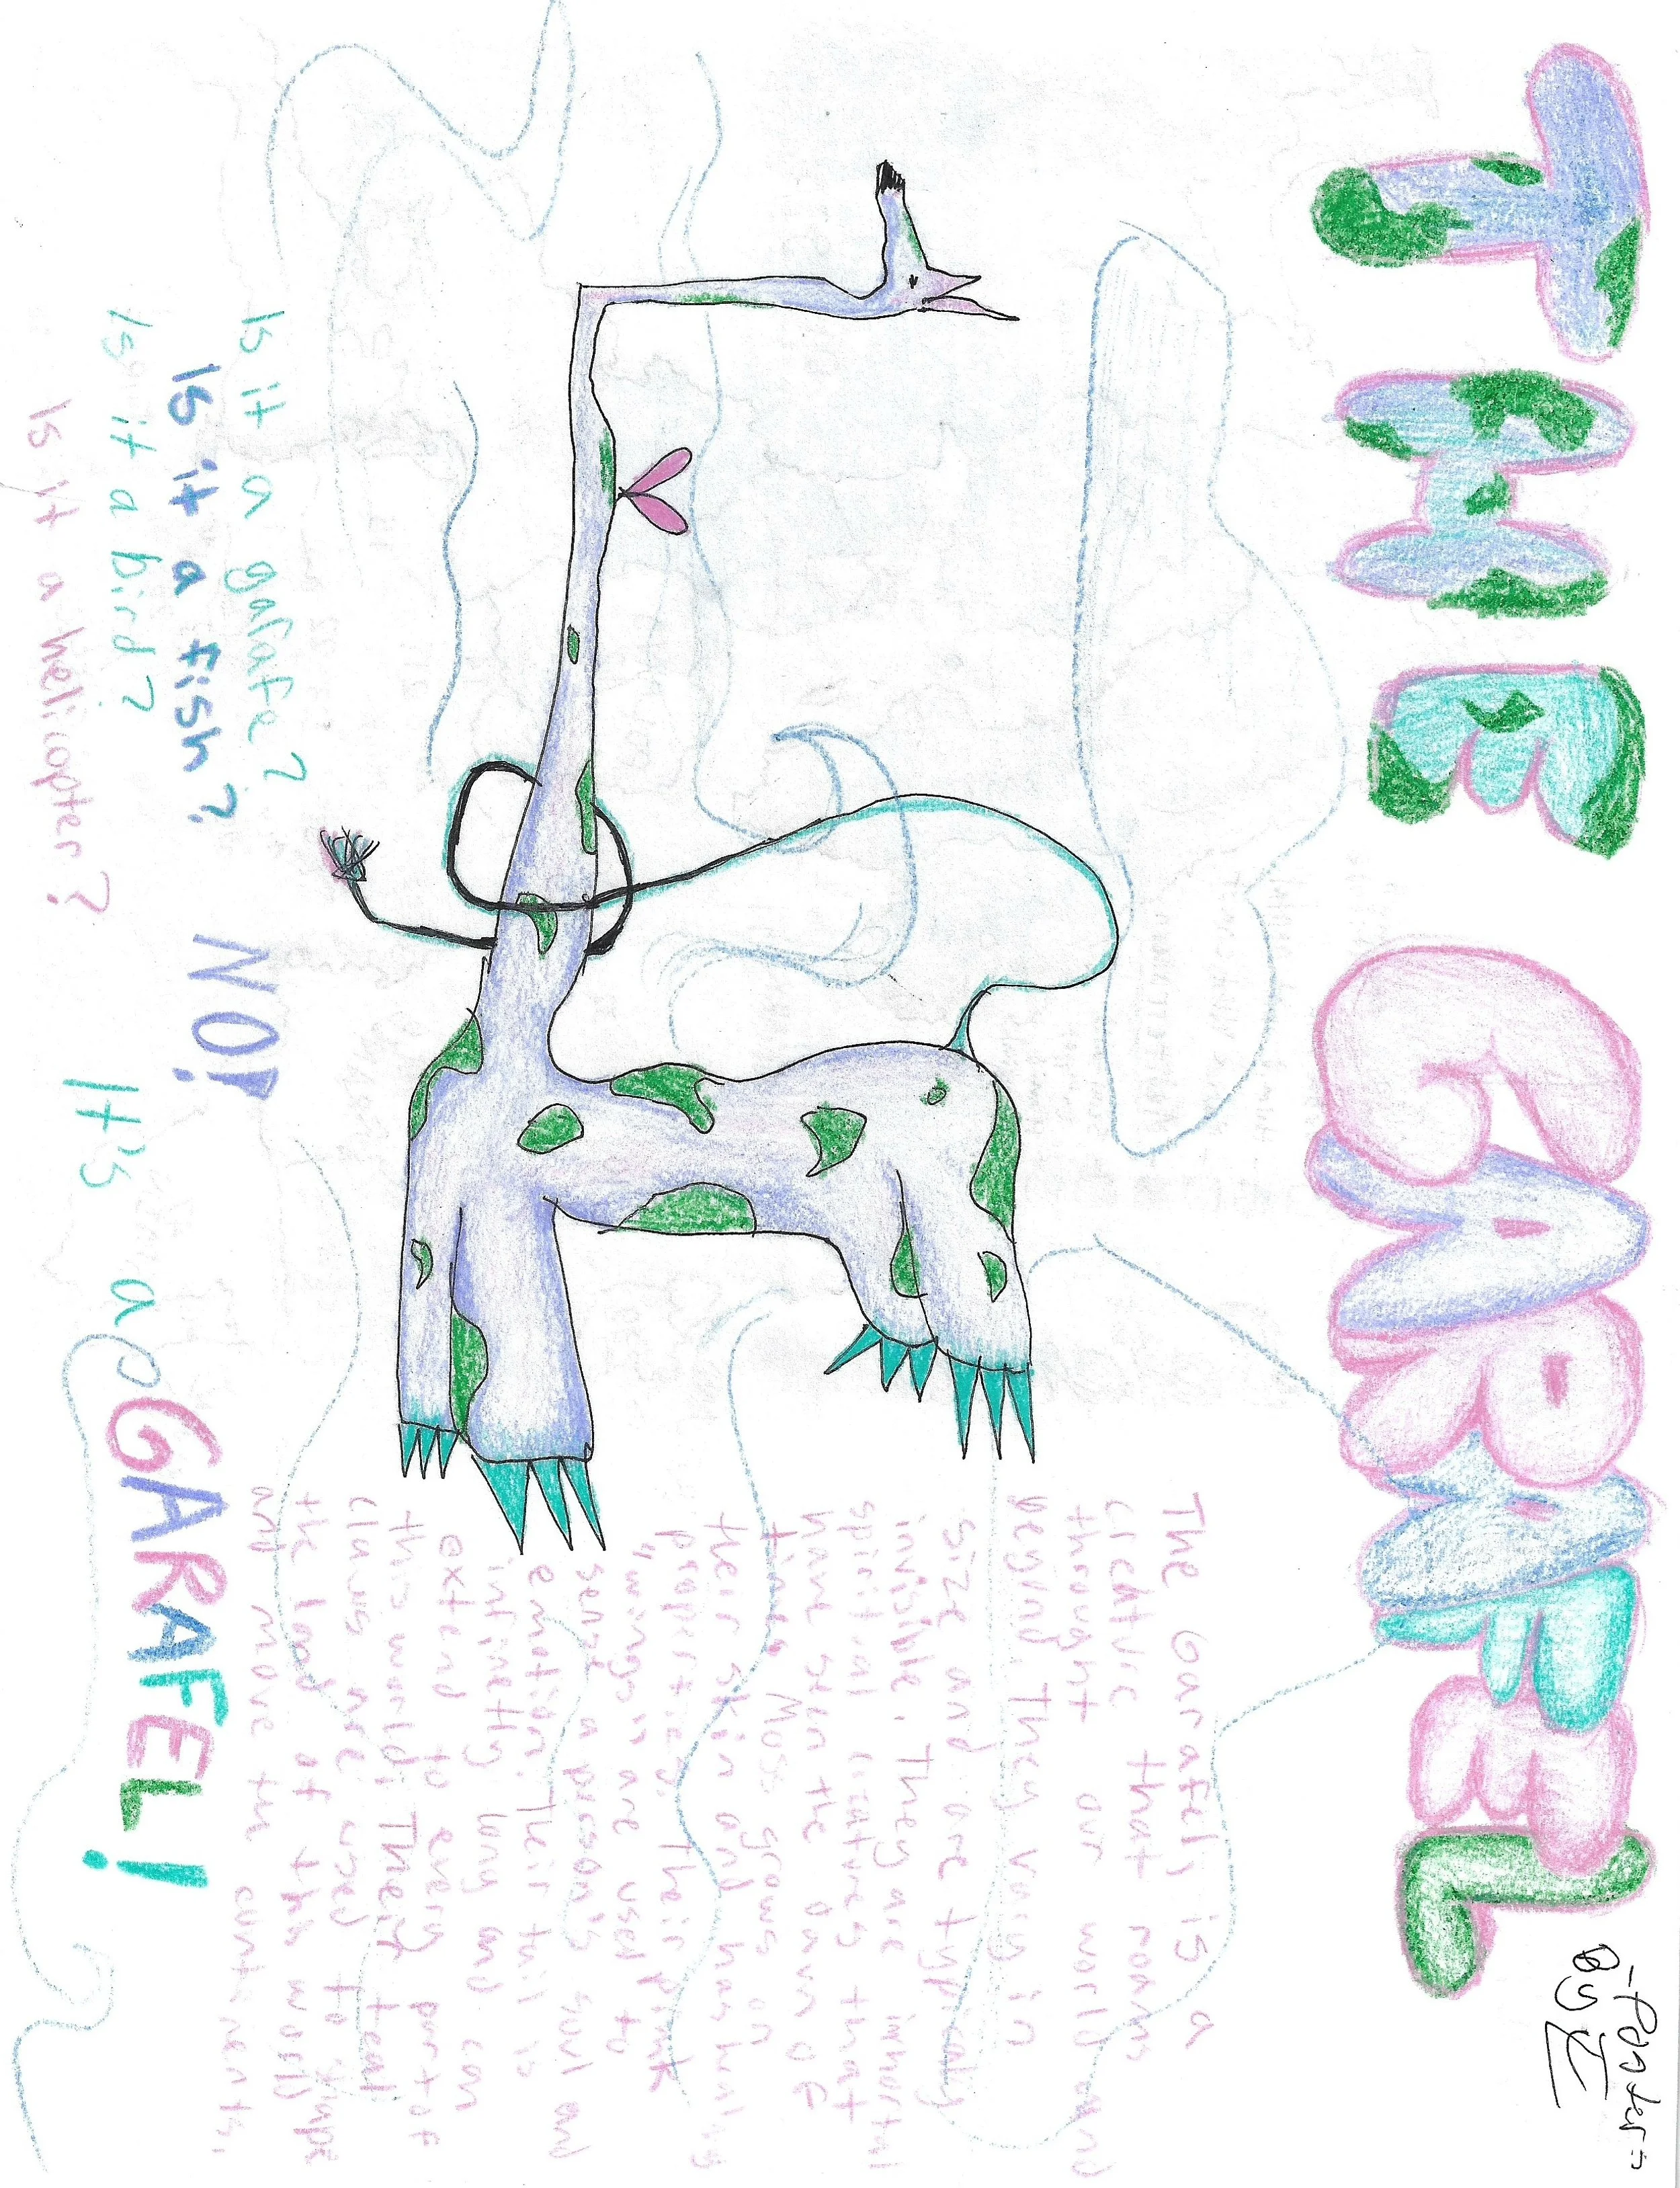 THE GARAFEL
-Poster-
By
The Garafel is a
creature that roams
throught our world and
beyond. They vary in
size and are typicaly
invisible. They are immortal
spiritual creatures that
have seen the dawn of
time. Moss grows on
their skin and has healing
properties. Their pink
"wings" are used to
sense a person's soul and
emotion. Their tail is
infinetly long and can
extend to every part of
this world. Their teal
claws are used to shape
the land of this world
and move the continents.
Is it a garafe?
Is it a fish?
Is it a bird?
Is it a helicopter?
NO!
It's a GARAFEL!